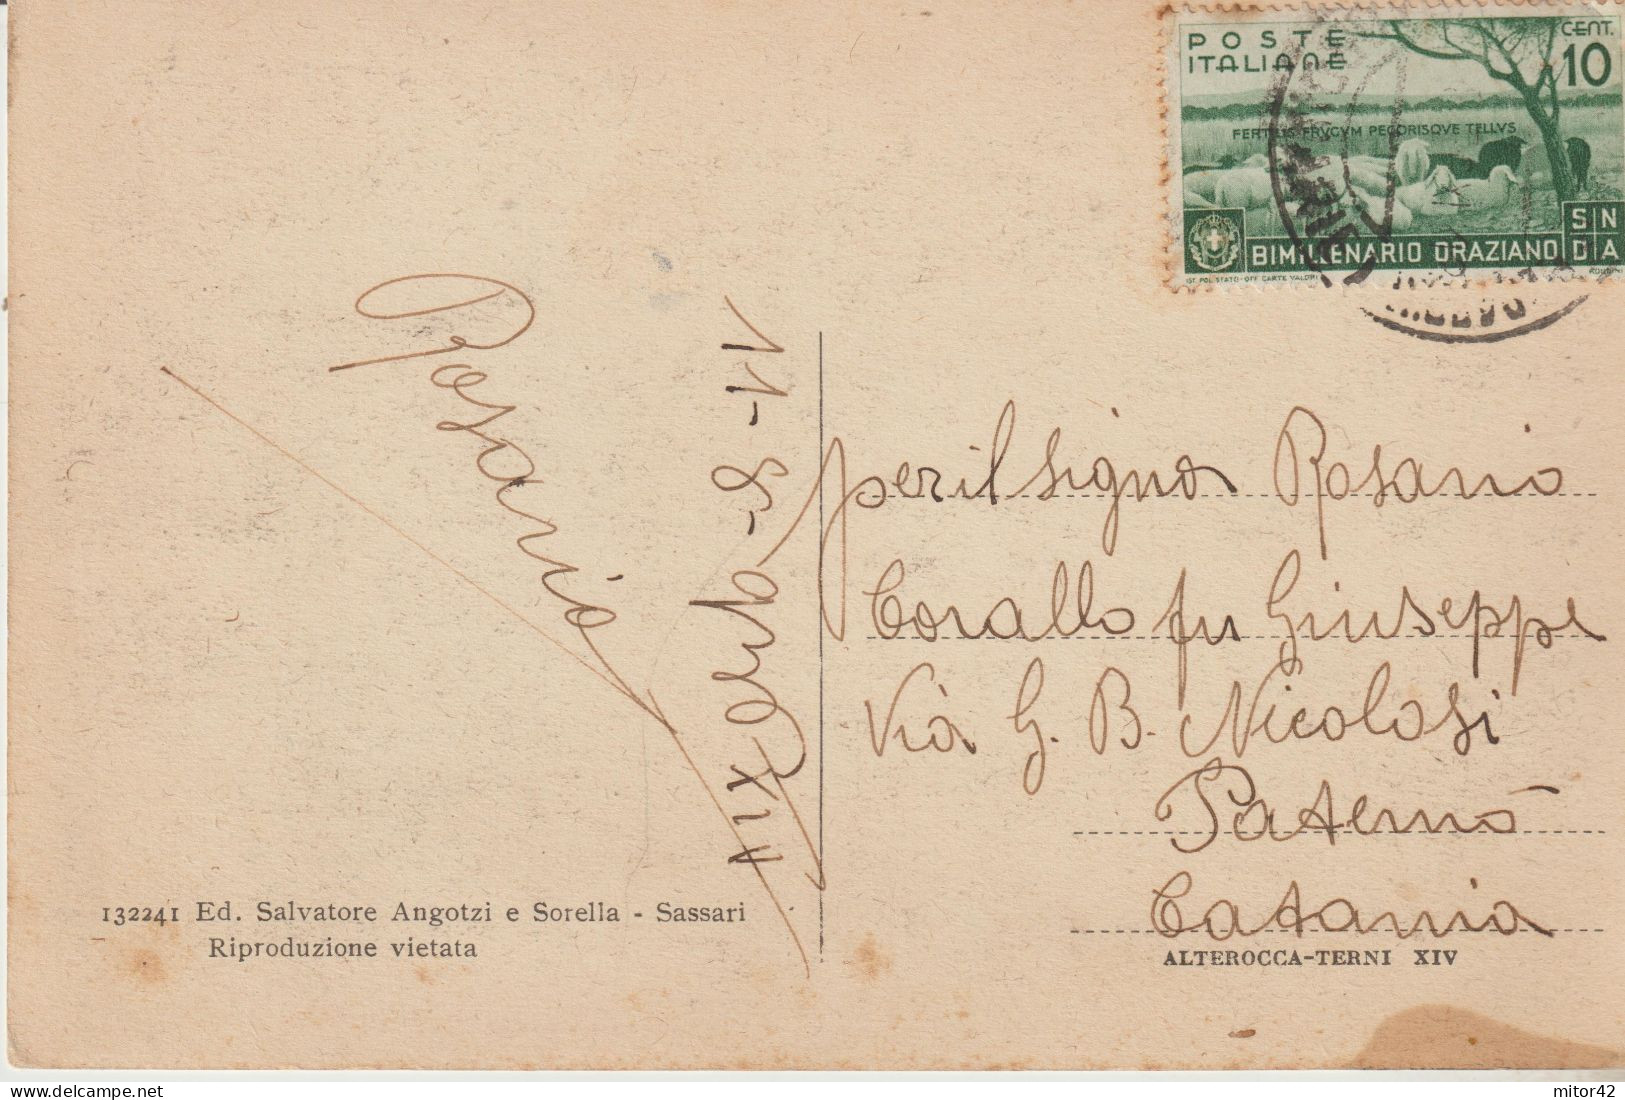 POSTE
ITALIANE
CENT.
10
FERTILIS FRVGVM PECORISQVE TELLVS
BIMILLENARIO ORAZIANO
SIN
DIA
IST. POL. STATO-OFF. CARTE VALORI
RONDINI
Rosario
11-9-936
XIV
per il signor Rosario
Corallo fu Giuseppe
Via G. B. Nicolosi
Paternò
Catania
132241 Ed. Salvatore Angotzi e Sorella - Sassari
Riproduzione vietata
ALTEROCCA-TERNI XIV
mitor42